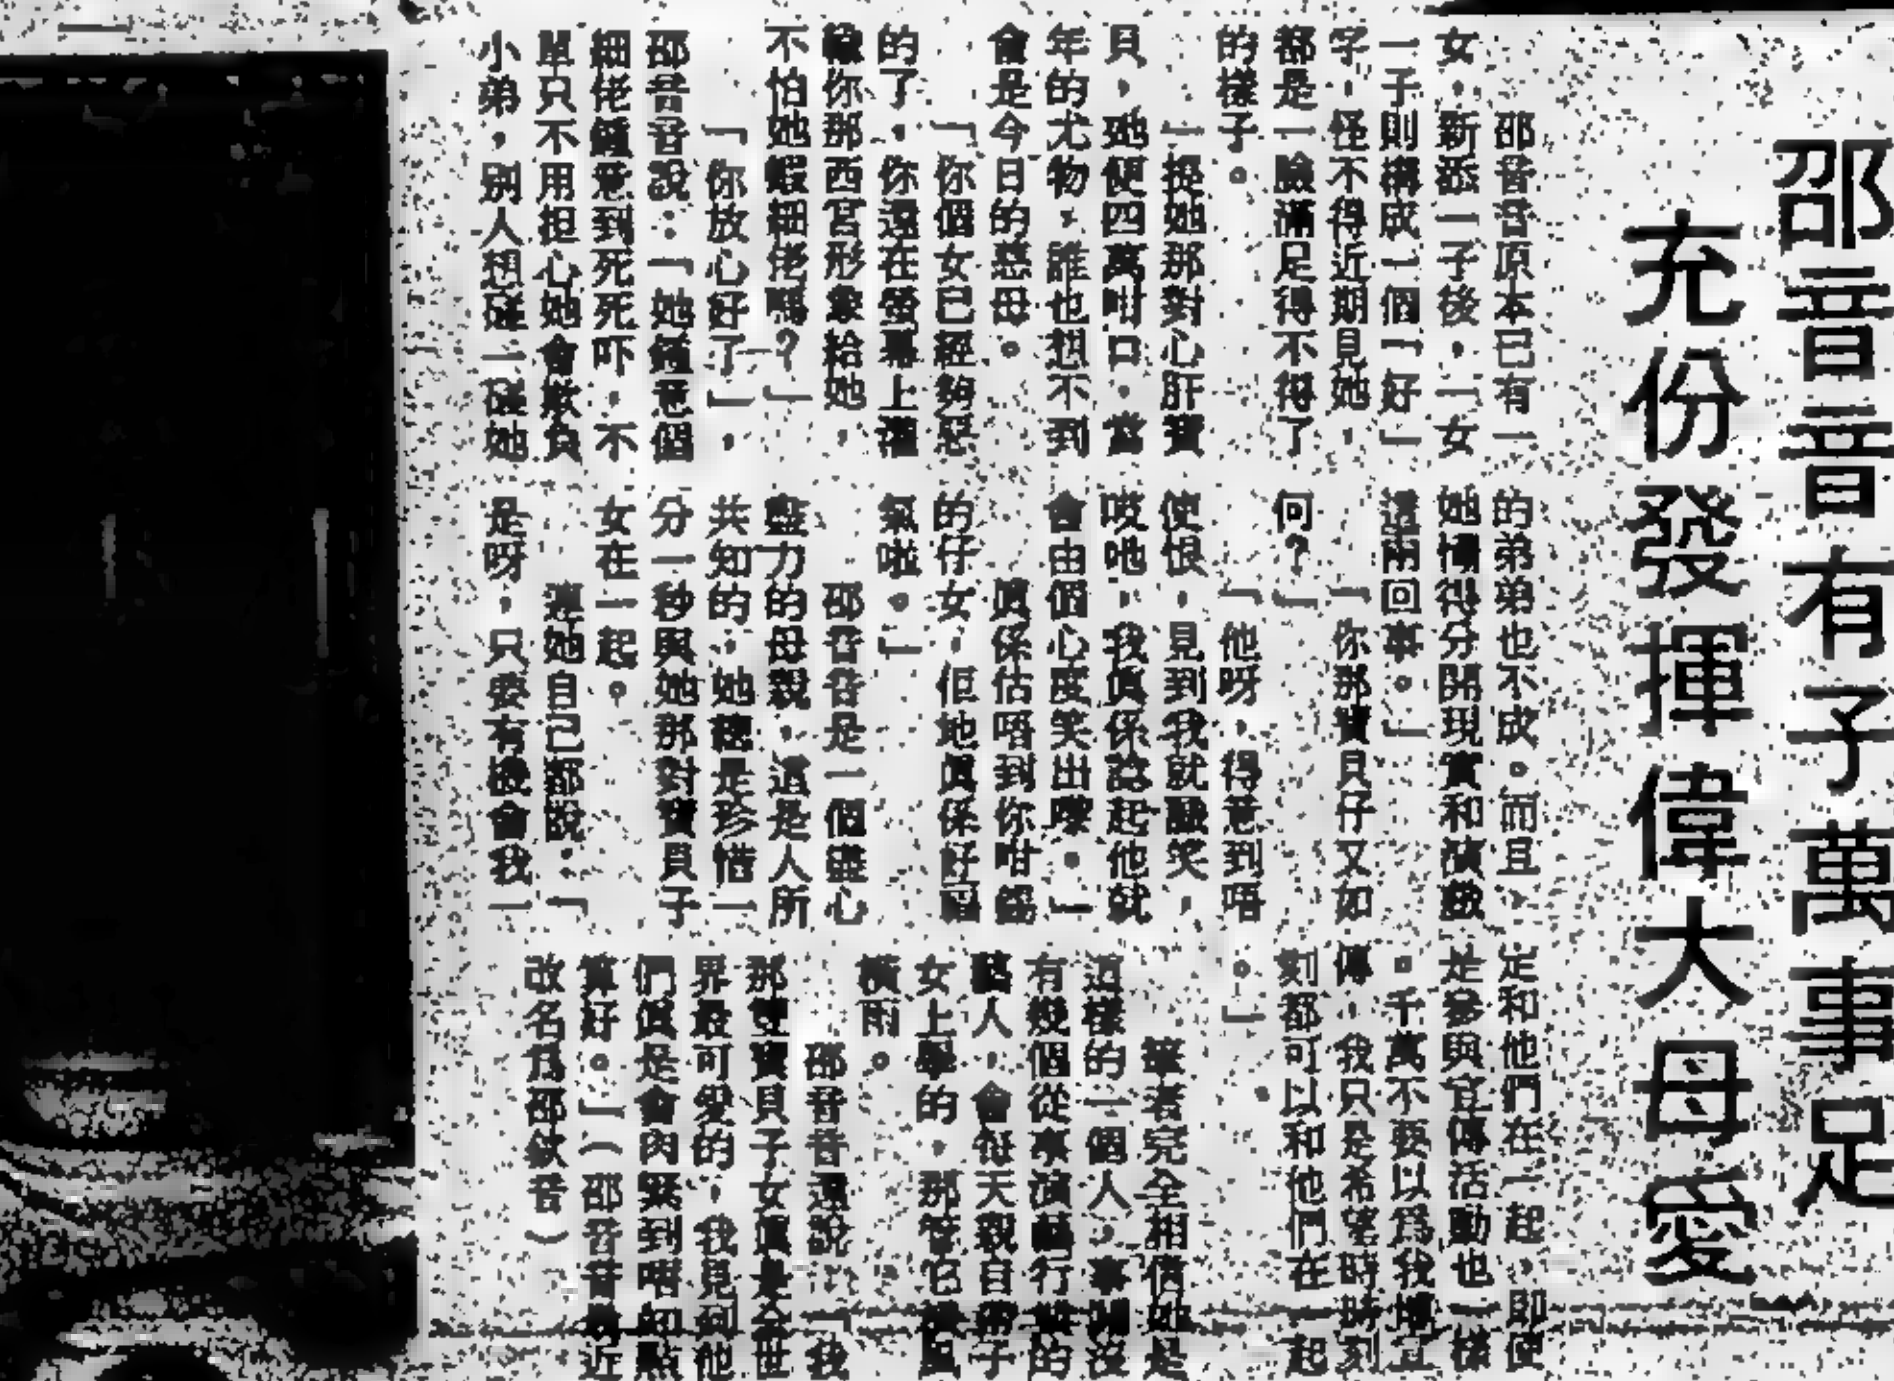 邵音音有子萬事足
充份發揮偉大母愛
邵音音原本已有一
女，新添一子後，一女
一子則構成一個「好」
字，怪不得近期見她，
都是一臉滿足得不得了
的樣子。
一提她那對心肝寶
貝，她便四萬咁口，當
年的尤物，誰也想不到
會是今日的慈母。
「你個女已經夠惡
的了，你還在螢幕上灌
輸你那西宮形象給她，
不怕她蝦細佬嗎？」
「你放心好了」，
邵音音說：「她鍾意個
細佬鍾意到死死吓，不
單只不用担心她會欺負
小弟，別人想碰一碰她
的弟弟也不成。而且，
她懂得分開現實和演戲
這兩回事。」
「你那寶貝仔又如
何？」
「他呀，得意到唔
使恨，見到我就識笑，
吱吔，我眞係諗起他就
會由個心度笑出嚟。」
眞係估唔到你咁錫
的仔女，佢地眞係好福
氣啦。」
邵音音是一個盡心
盡力的母親，這是人所
共知的，她總是珍惜一
分一秒與她那對寶貝子
女在一起。
連她自己都說：「
是呀，只要有機會我一
定和他們在一起，即使
是參與宣傳活動也一樣
。千萬不要以爲我博宣
傳，我只是希望時時刻
刻都可以和他們在一起
。」
筆者完全相信她是
這樣的一個人，事關沒
有幾個從事演藝行業的
藝人，會每天親自帶子
女上學的，那管它橫風
橫雨。
邵音音還說：「我
那雙寶貝子女眞是全世
界最可愛的，我見到他
們眞是會肉緊到唔知點
算好。」（邵音音最近
改名爲邵欽音）